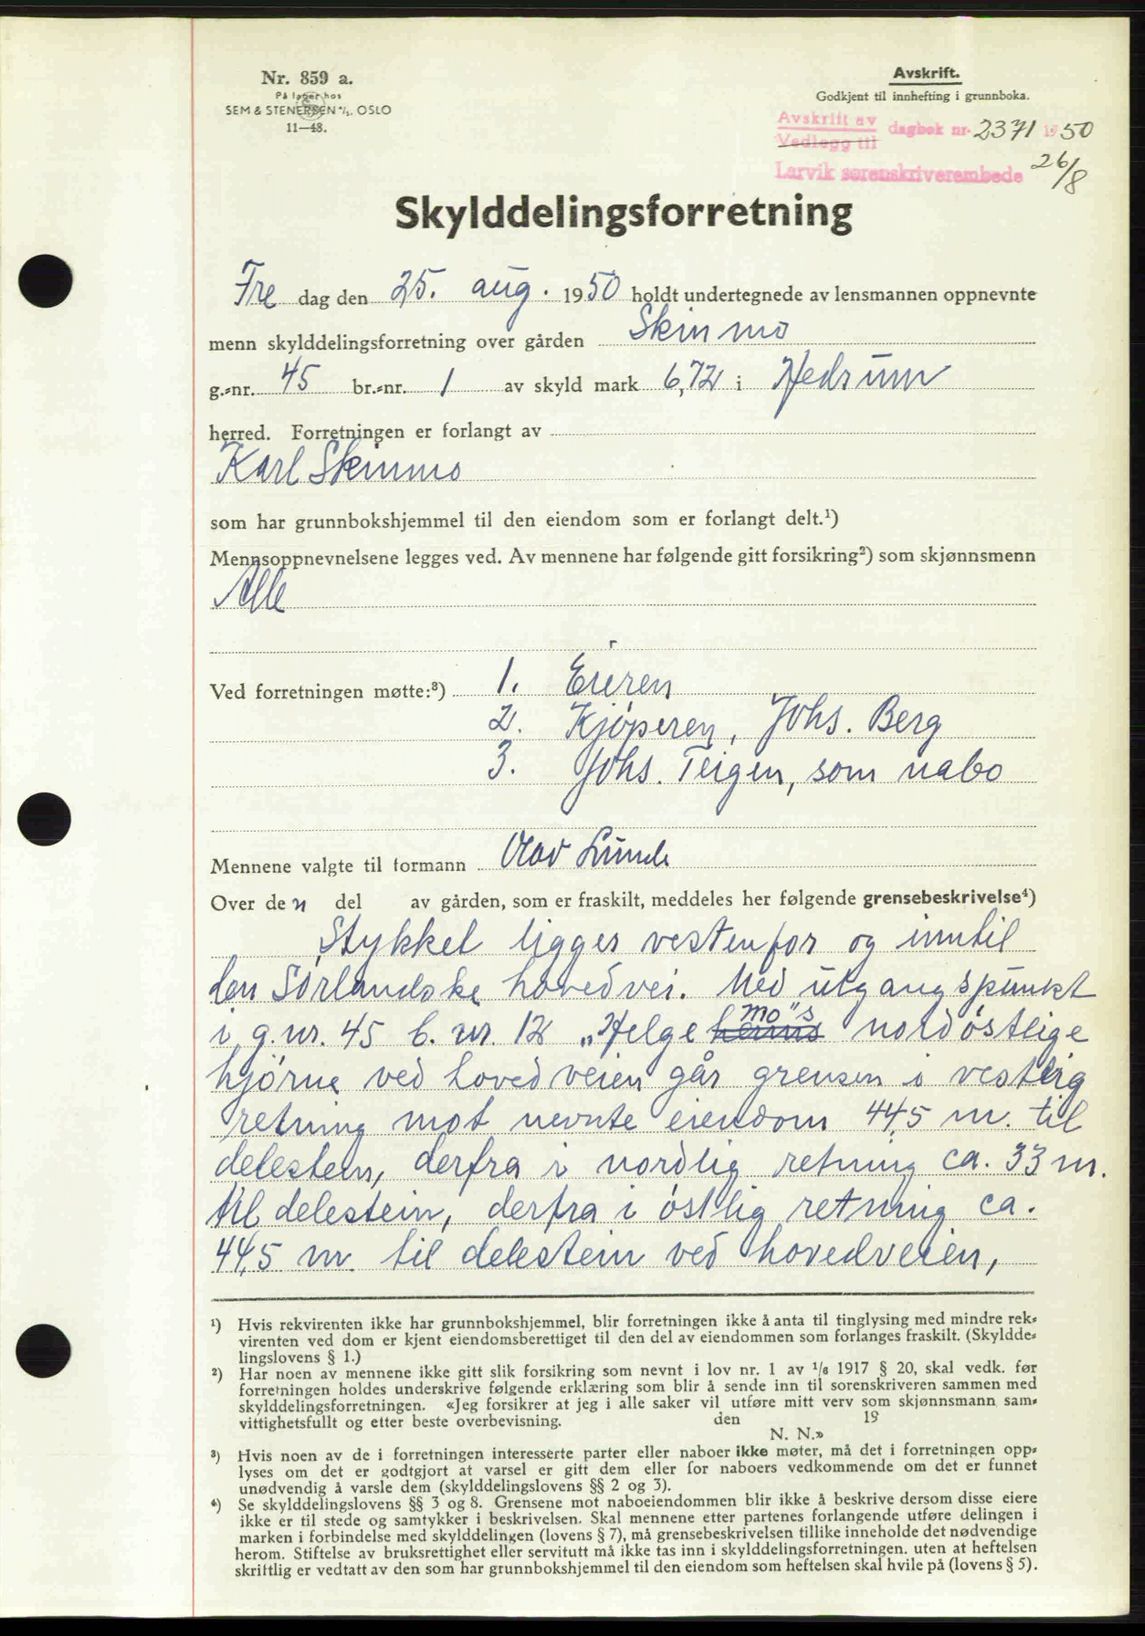 Nr. 859 a.
På lager hos
SEM & STENERSEN A/S. OSLO
11—48.
Avskrift.
Godkjent til innhefting i grunnboka.
Avskrift av
Vedlegg til
dagbok nr. 2371 1950
Larvik sorenskriverembede 26/8
Skylddelingsforretning
Fre dag den 25. aug. 1950 holdt undertegnede av lensmannen oppnevnte
menn skylddelingsforretning over gården Skinmo
g.-nr. 45 br.-nr. 1 av skyld mark 6,72 i Hedrum
herred. Forretningen er forlangt av
Karl Skinmo
som har grunnbokshjemmel til den eiendom som er forlangt delt.¹)
Mennsoppnevnelsene legges ved. Av mennene har følgende gitt forsikring²) som skjønnsmenn
Alle
Ved forretningen møtte:³) 1. Eieren
2. Kjöperen, Johs. Berg
3. Johs. Teigen, som nabo
Mennene valgte til formann Olav Lunde
Over den del av gården, som er fraskilt, meddeles her følgende grensebeskrivelse⁴)
Stykket ligger vestenfor og inntil
den Sörlandske hovedvei. Med utgangspunkt
i g.nr. 45 b. nr. 12 „Helgemo"s nordöstlige
hjörne ved hovedveien går grensen i vestlig
retning mot nevnte eiendom 44,5 m. til
delestein, derfra i nordlig retning ca. 33 m.
til delestein, derfra i östlig retning ca.
44,5 m. til delestein ved hovedveien,
¹) Hvis rekvirenten ikke har grunnbokshjemmel, blir forretningen ikke å anta til tinglysing med mindre rek-
virenten ved dom er kjent eiendomsberettiget til den del av eiendommen som forlanges fraskilt. (Skyldde-
lingslovens § 1.)
²) Har noen av mennene ikke gitt slik forsikring som nevnt i lov nr. 1 av 1/6 1917 § 20, skal vedk. før
forretningen holdes underskrive følgende erklæring som blir å sende inn til sorenskriveren sammen med
skylddelingsforretningen. «Jeg forsikrer at jeg i alle saker vil utføre mitt verv som skjønnsmann sam-
vittighetsfullt og etter beste overbevisning. den 19
N. N.»
³) Hvis noen av de i forretningen interesserte parter eller naboer ikke møter, må det i forretningen opp-
lyses om det er godtgjort at varsel er gitt dem eller for naboers vedkommende om det er funnet
unødvendig å varsle dem (skylddelingslovens §§ 2 og 3).
⁴) Se skylddelingslovens §§ 3 og 8. Grensene mot naboeiendommen blir ikke å beskrive dersom disse eiere
ikke er til stede og samtykker i beskrivelsen. Skal mennene etter partenes forlangende utføre delingen i
marken i forbindelse med skylddelingen (lovens § 7), må grensebeskrivelsen tillike inneholde det nødvendige
herom. Stiftelse av bruksrettighet eller servitutt må ikke tas inn i skylddelingsforretningen. uten at heftelsen
skriftlig er vedtatt av den som har grunnbokshjemmel til den eiendom som heftelsen skal hvile på (lovens § 5).